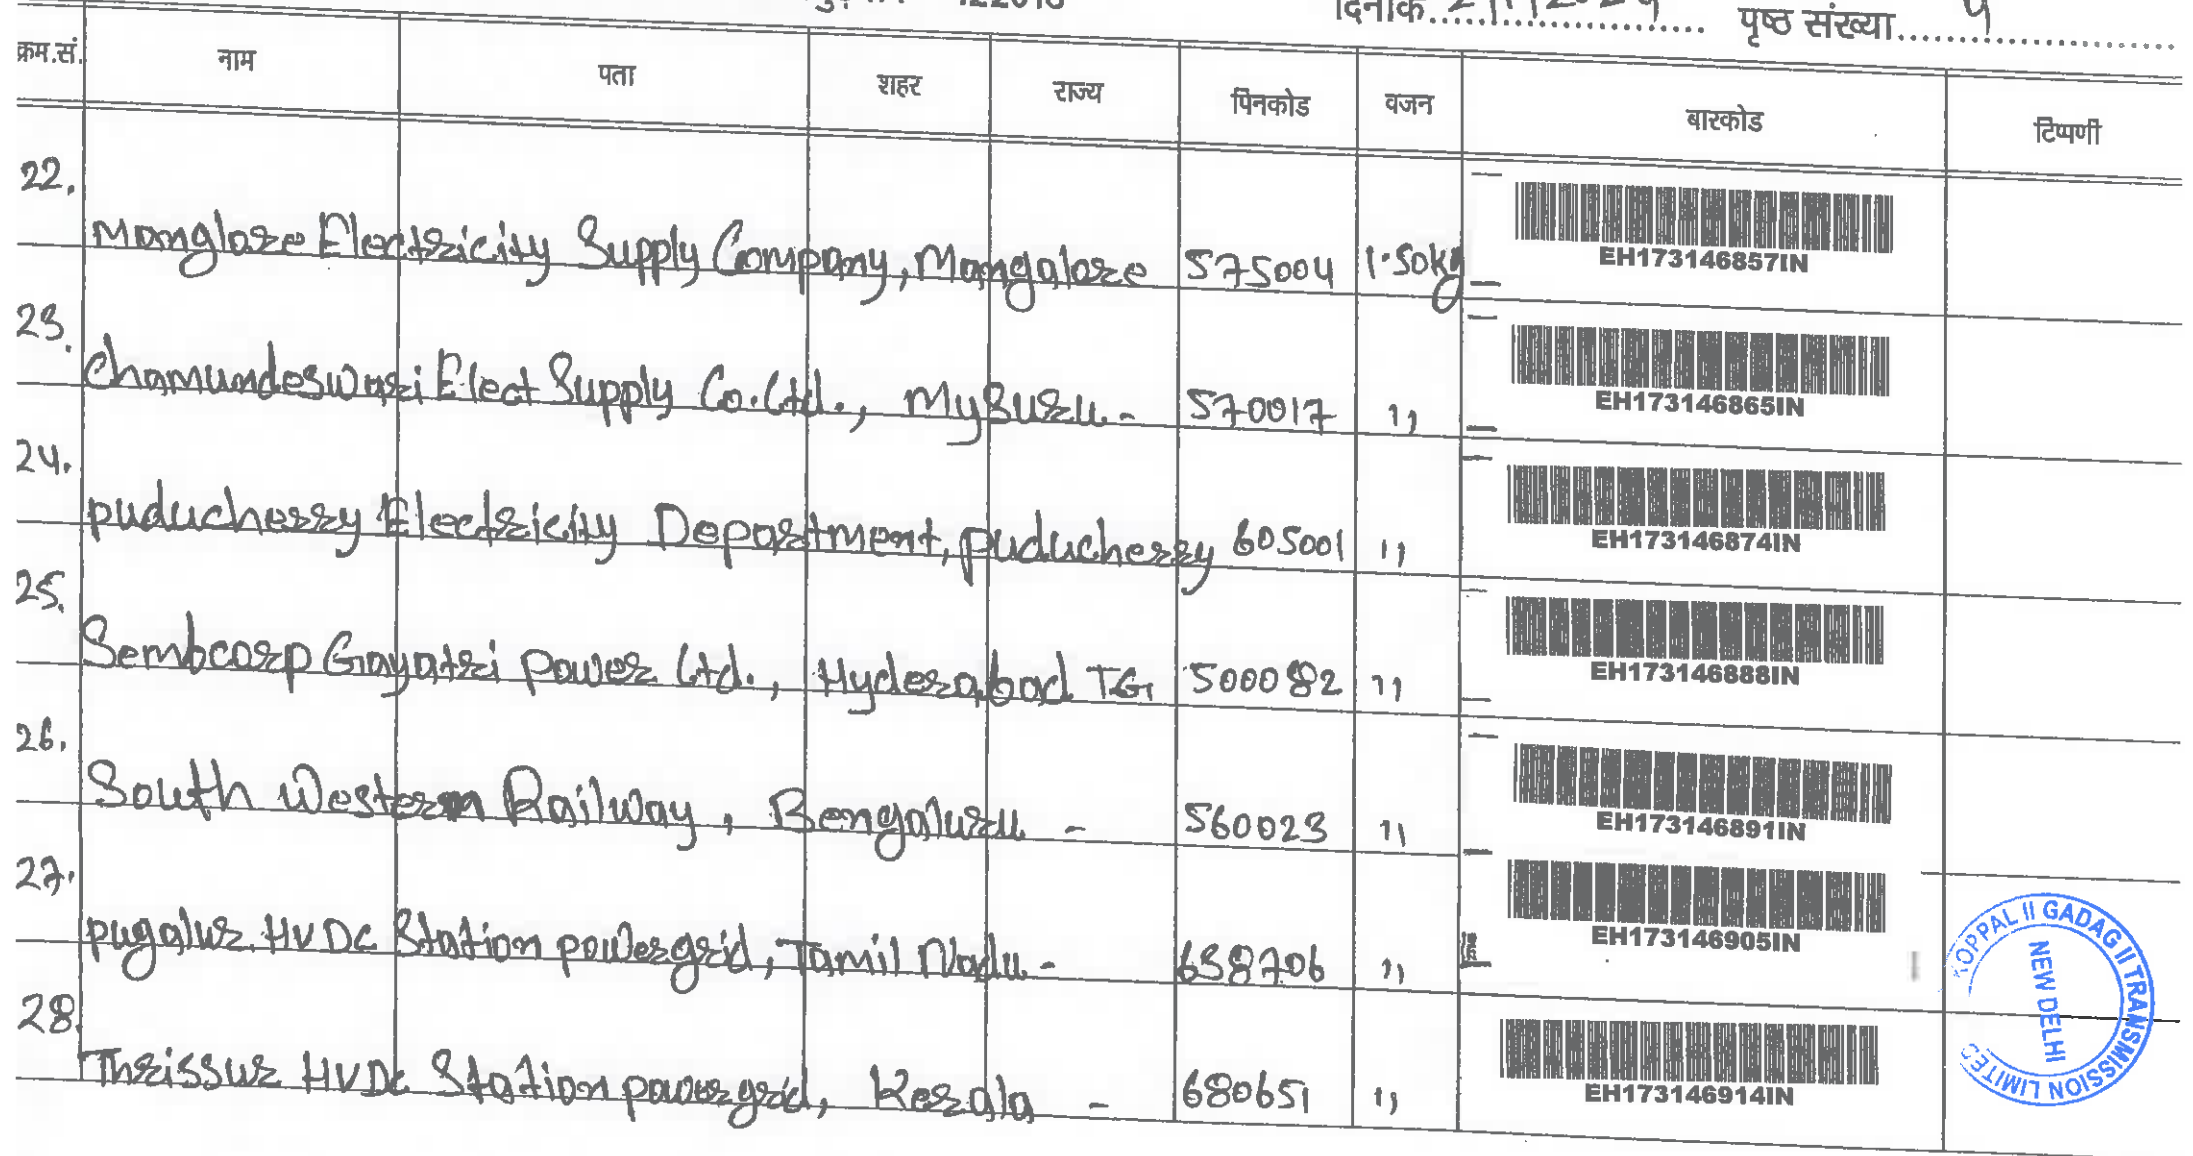 दिनांक पृष्ठ संख्या 4
क्रम.सं. नाम पता शहर राज्य पिनकोड वजन बारकोड टिप्पणी
22. Manglore Electricity Supply Company, Mangalore 575004 1.50kg EH173146857IN
23. Chamundeswari Elect Supply Co. Ltd., Mysuru - 570017 ,, EH173146865IN
24. puducherry Electricity Department, puducherry 605001 ,, EH173146874IN
25. Sembcorp Gayatri Power Ltd., Hyderabad TG 500082 ,, EH173146888IN
26. South Western Railway, Bengaluru - 560023 ,, EH173146891IN
27. pugalur HVDC Station powergrid, Tamil Nadu - 638706 ,, EH173146905IN
28. Thrissur HVDC Station powergrid, Kerala - 680651 ,, EH173146914IN
KOPPAL II GADAG II TRANSMISSION LIMITED
NEW DELHI